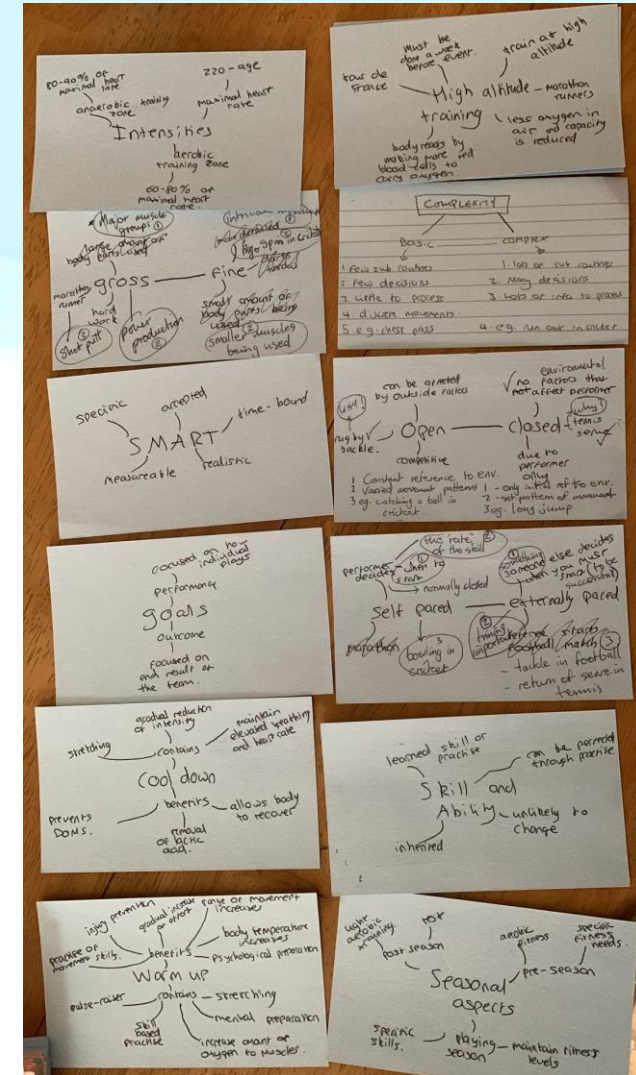 80-90% of
maximal heart
rate.
anaerobic training
zone
220-age
maximal heart
rate
Intensities
aerobic
training zone
60-80% of
maximal heart
rate.
must be
done a week
before event.
train at high
altitude
tour de
france
High altitude
training
marathon
runners
less oxygen in
air and capacity
is reduced
body reacts by
making more red
blood cells to
carry oxygen.
Major muscle
groups ①
large amount of
body parts used
marathon
runner
gross
hard
work
shot putt
power
production
②
fine
small amount of
body parts being
used
smaller muscles
being used
COMPLEXITY
Basic
complex
1. few sub routines
2. few decisions
3. little to process
4. discrete movements.
5. e.g. chess pass
1. lots of sub routines
2. Many decisions
3. Lots of info to process
4. e.g. run out in cricket
specific
accepted
time-bound
SMART
measureable
realistic
can be affected
by outside factors
why?
rugby
tackle.
Open
competitive
1 Constant reference to env.
2 Varied movement patterns
3 eg. catching a ball in
cricket
environmental
no factors that
not affect performer
closed
why?
tennis
serve
due to
performer
only
1 - only initial ref to env.
2 - set pattern of movement
3 eg. long jump.
focused on
individual
plays
performance
goals
outcome
focused on
end result of
the team.
the 'rate' ②
of the skill
performer
decides
when to
start
①
normally closed
self paced
marathon
bowling in
cricket
3
① something
someone else decides
when you must
start (to be
successful)
externally paced
②
timing
important
referee starts
football match ③
- tackle in football
- return of serve in
tennis
gradual reduction
of intensity
stretching
contains
maintain
elevated breathing
and heart rate
Cool down
benefits
prevents
DOMS.
removal
of lactic
acid.
allows body
to recover
learned skill or
practise
can be perfected
through practise
Skill and
Ability
unlikely to
change
inherited
injury prevention
gradual increase
of effort
range of movement
increases
practise of
movement skills.
benefits
body temperature
increases
psychological preparation
Warm up
pulse-raiser
contains
stretching
skill
based
practise
mental preparation
increase amount of
oxygen to muscles.
light
aerobic
training.
rest
post season
aerobic
fitness
specific
fitness
needs.
pre-season
Seasonal
aspects
specific
skills.
playing
season
maintain fitness
levels